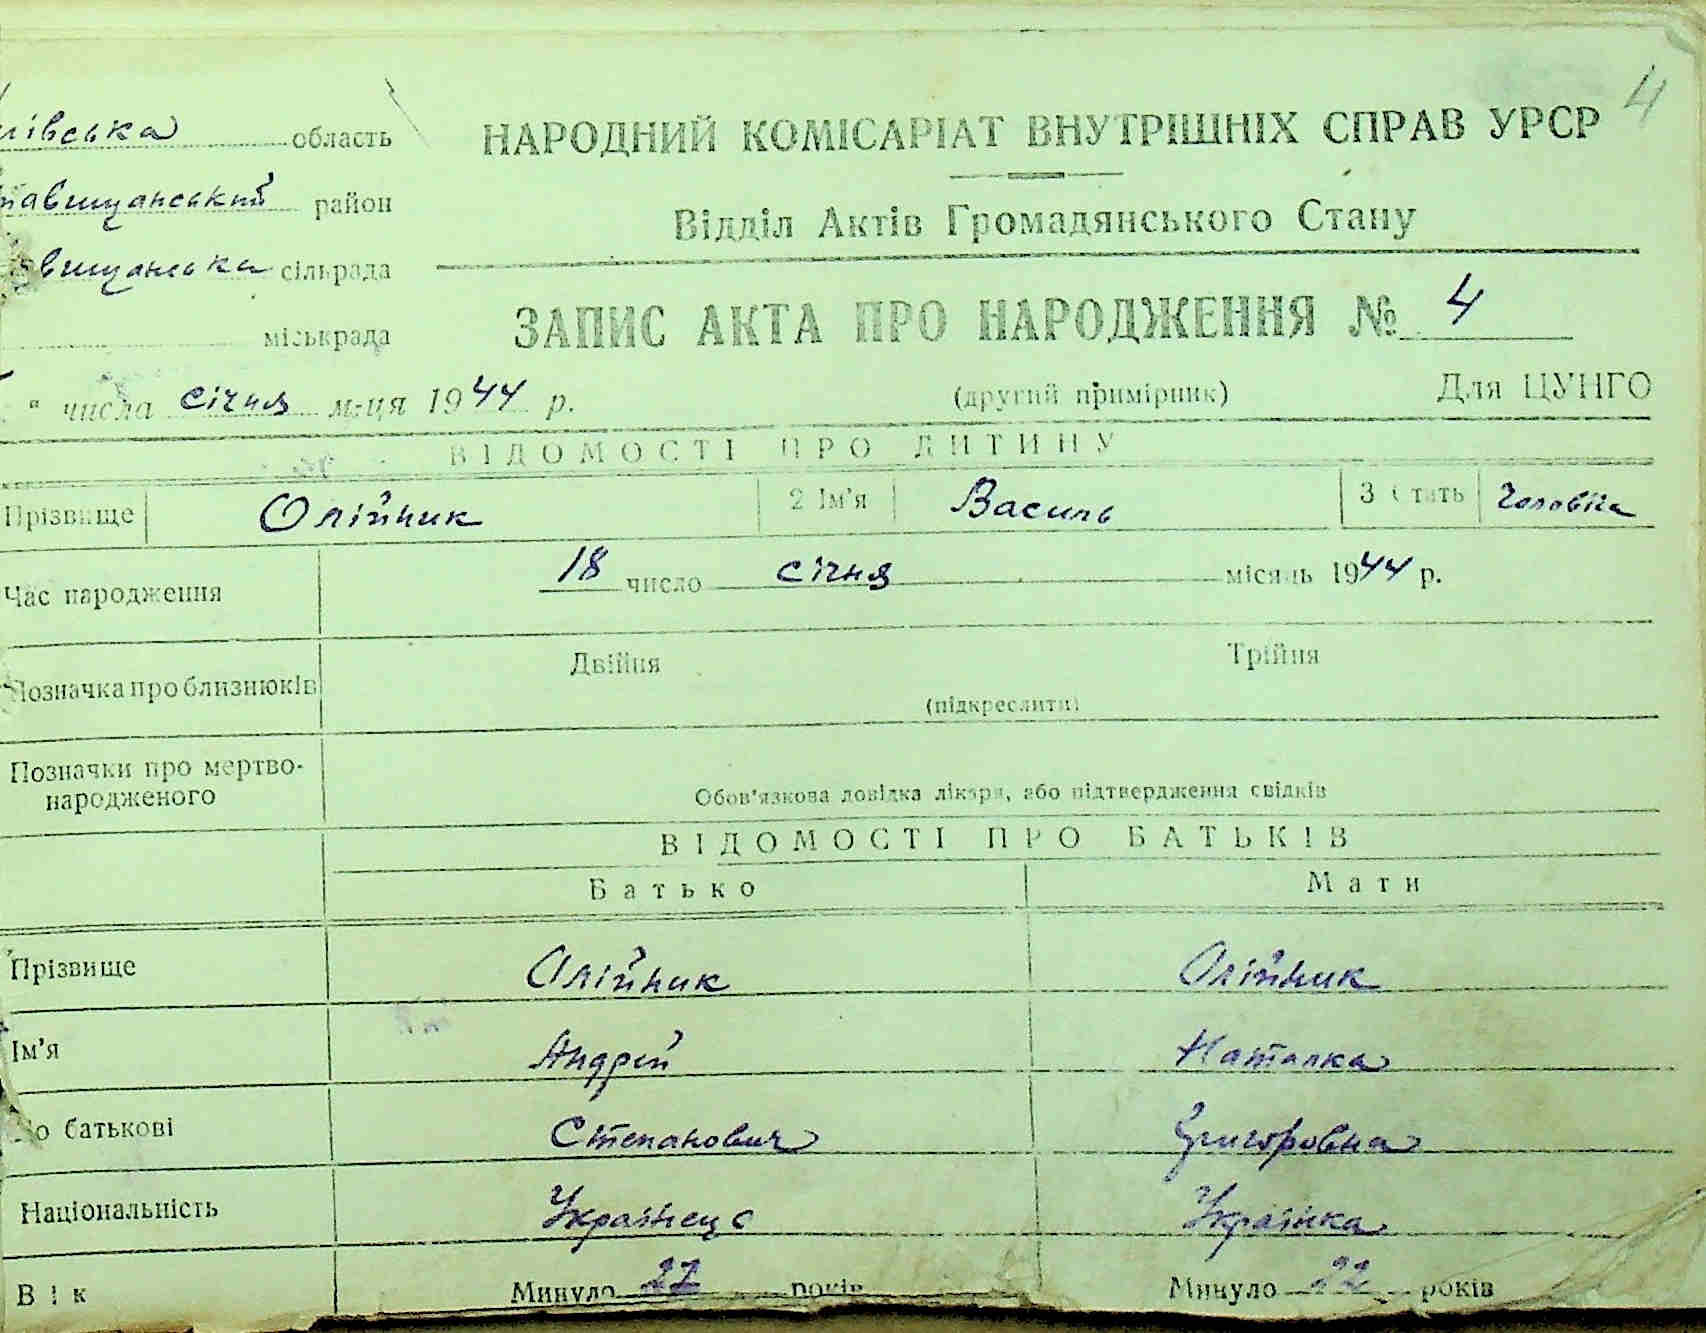 4
ївська область
НАРОДНИЙ КОМІСАРІАТ ВНУТРІШНІХ СПРАВ УРСР
тавищанський район
Відділ Актів Громадянського Стану
вищанська сільрада
ЗАПИС АКТА ПРО НАРОДЖЕННЯ № 4
міськрада
" числа січня м-ця 1944 р.
(другий примірник)
Для ЦУНГО
ВІДОМОСТІ ПРО ДИТИНУ
Прізвище Олійник 2 Ім'я Василь 3 Стать
Час народження 18 число січня місяць 1944 р.
Позначка про близнюків Двійня Трійня
(підкреслити)
Позначки про мертво-
народженого
Обов'язкова довідка лікаря, або підтвердження свідків
ВІДОМОСТІ ПРО БАТЬКІВ
Батько Мати
Прізвище Олійник Олійник
Ім'я Андрій Наталка
По батькові Степанович Григоровна
Національність Українець Українка
Вік Минуло років Минуло 22 років